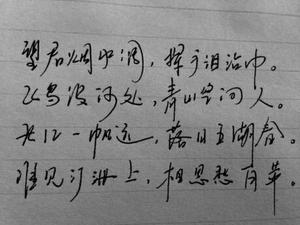 望君烟水阔，挥手泪沾巾。
飞鸟没何处，青山空向人。
长江一帆远，落日五湖春。
谁见汀洲上，相思愁白苹。